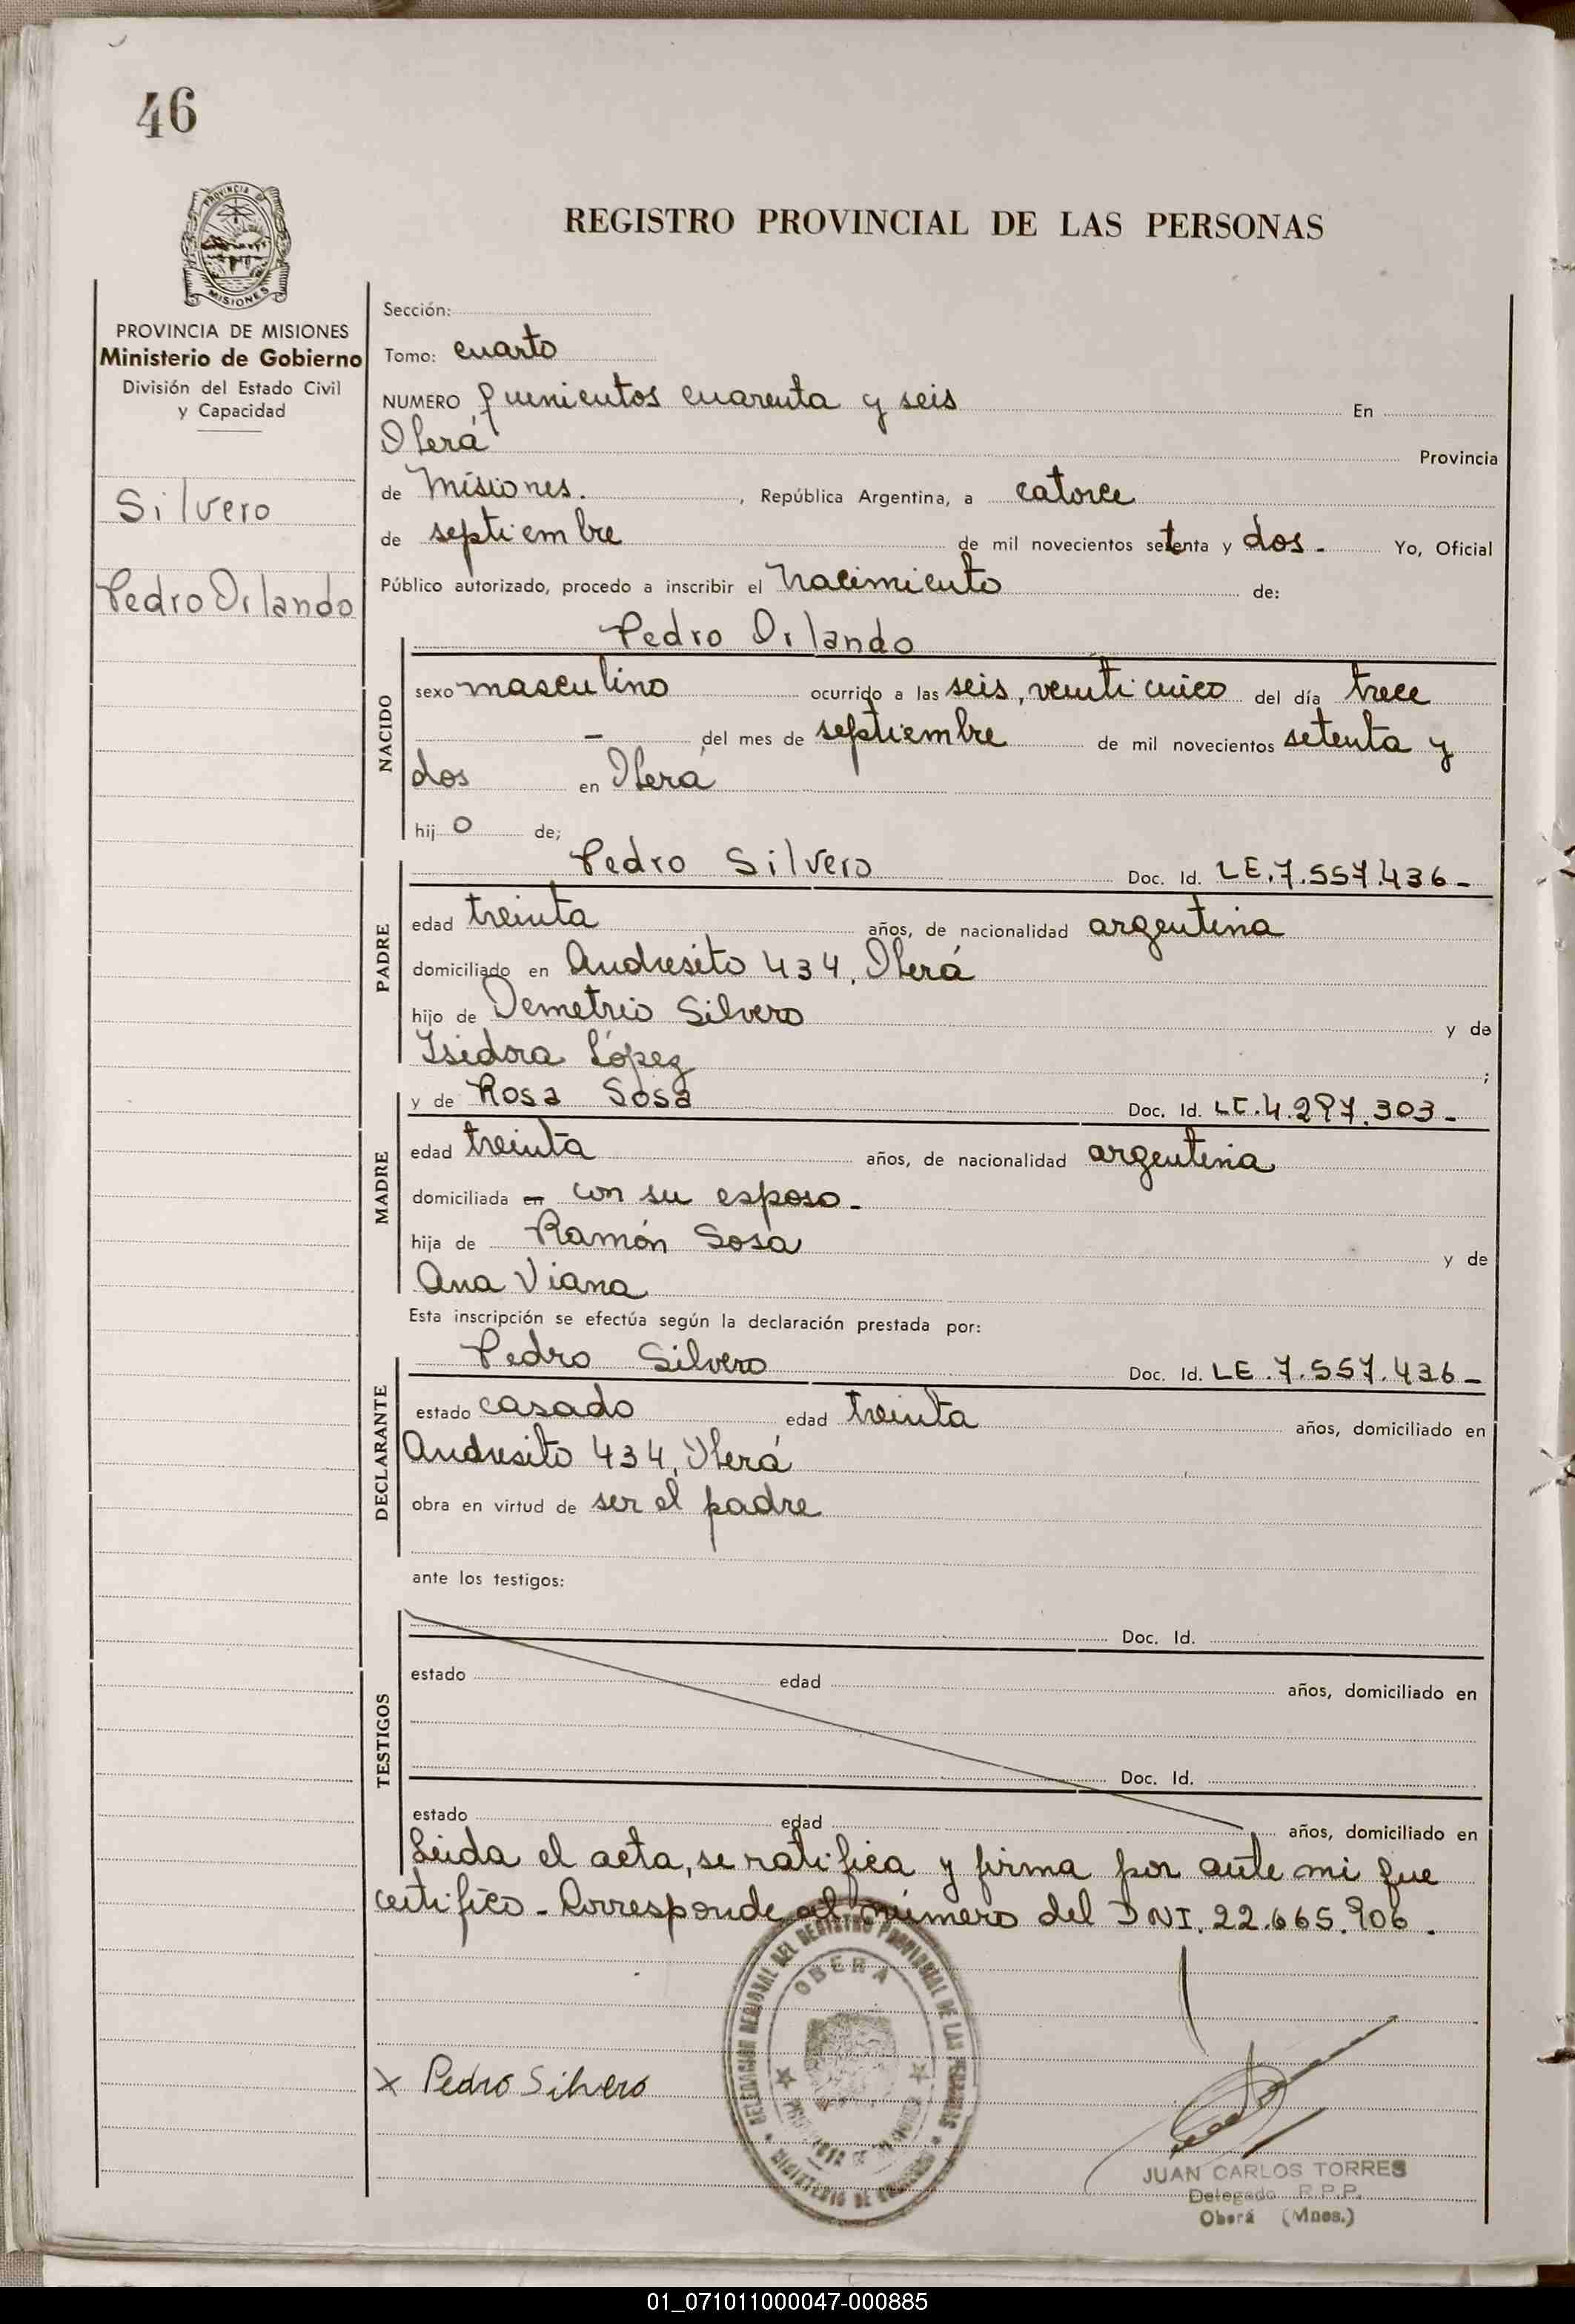 46
PROVINCIA
MISIONES
REGISTRO PROVINCIAL DE LAS PERSONAS
PROVINCIA DE MISIONES
Ministerio de Gobierno
División del Estado Civil
y Capacidad
Silvero
Pedro Orlando
Sección:
Tomo: cuarto
NUMERO quinientos cuarenta y seis En
Oberá Provincia
de Misiones. , República Argentina, a catorce
de septiembre de mil novecientos setenta y dos - Yo, Oficial
Público autorizado, procedo a inscribir el Nacimiento de:
Pedro Orlando
NACIDO
sexo masculino ocurrido a las seis, veinticinco del día trece
- del mes de septiembre de mil novecientos setenta y
dos en Oberá
hij o de;
Pedro Silvero Doc. Id. LE.7.557.436-
PADRE
edad treinta años, de nacionalidad argentina
domiciliado en Andresito 434, Oberá
hijo de Demetrio Silvero y de
Isidora López ;
y de Rosa Sosa Doc. Id. LC.4.297.303-
MADRE
edad treinta años, de nacionalidad argentina
domiciliada en con su esposo-
hija de Ramón Sosa y de
Ana Viana
Esta inscripción se efectúa según la declaración prestada por:
Pedro Silvero Doc. Id. LE.7.557.436-
DECLARANTE
estado casado edad treinta años, domiciliado en
Andresito 434, Oberá
obra en virtud de ser el padre
ante los testigos:
Doc. Id.
TESTIGOS
estado edad años, domiciliado en
Doc. Id.
estado edad años, domiciliado en
Leida el acta, se ratifica y firma por ante mi que
certifico - Corresponde al número del DNI. 22.665.906.
DELEGACIÓN REGIONAL DEL REGISTRO PROVINCIAL DE LAS PERSONAS
OBERA
MINISTERIO DE GOBIERNO
x Pedro Silvero
JUAN CARLOS TORRES
Delegado R.P.P.
Oberá (Mnes.)
01_071011000047-000885